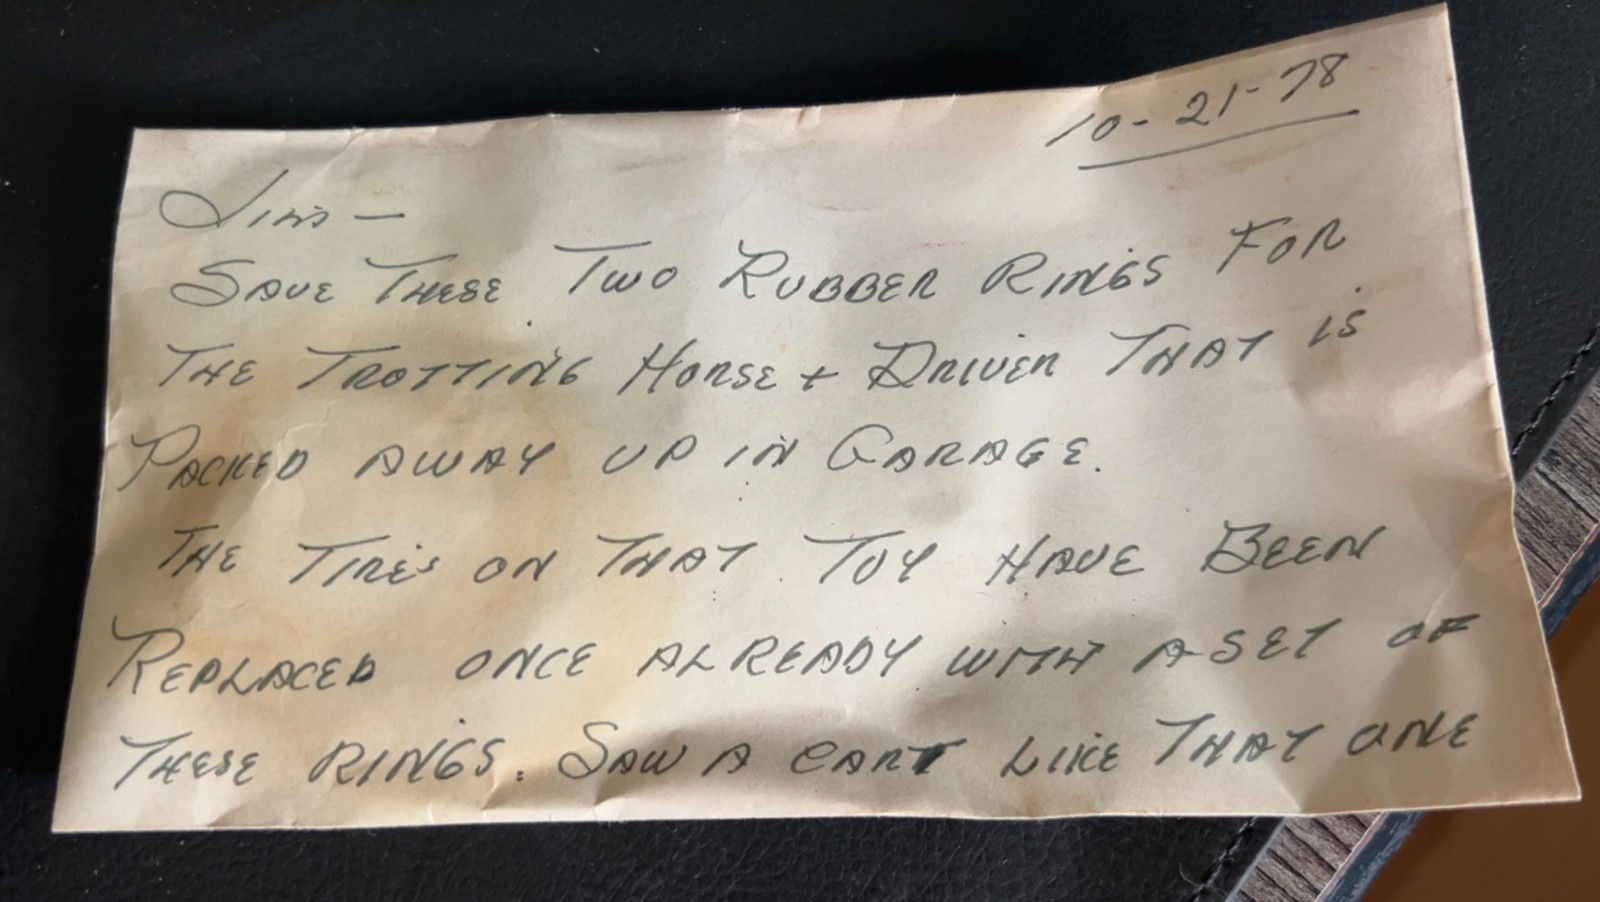 10-21-78
Jim's —
Save These Two Rubber Rings For
The Trotting Horse + Driver That is
Packed away up in Garage.
The Tires on That Toy Have Been
Replaced once already with a set of
These rings. Saw a cart like That one